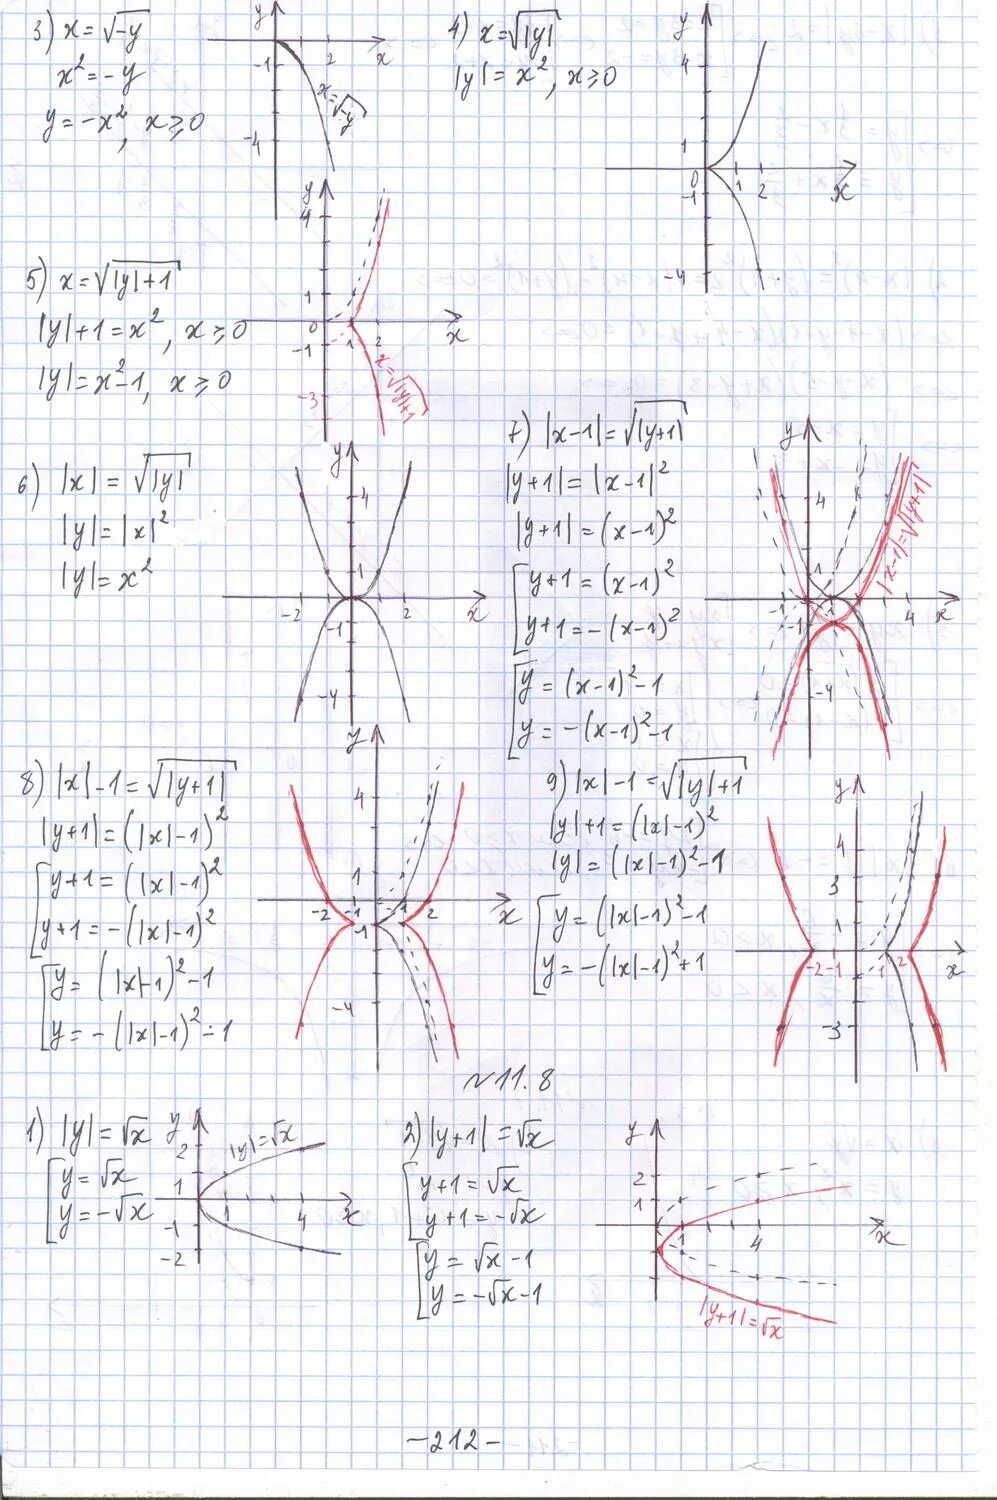 3) x = √-y
x² = -y
y = -x², x ≥ 0
y
-1
2
x
-4
x=√-y
4) x = √|y|
|y| = x², x ≥ 0
y
4
1
0
-1
1
2
x
-4
5) x = √|y|+1
|y|+1 = x², x ≥ 0
|y| = x²-1, x ≥ 0
y
4
1
0
-1
1
2
x
-3
x=√|y|+1
6) |x| = √|y|
|y| = |x|²
|y| = x²
y
4
1
-2
2
x
-1
-4
7) |x-1| = √|y+1|
|y+1| = |x-1|²
|y+1| = (x-1)²
[ y+1 = (x-1)²
y+1 = -(x-1)²
[ y = (x-1)²-1
y = -(x-1)²-1
y
4
1
-1
-1
1
4
x
-4
|x-1|=√|y+1|
8) |x|-1 = √|y+1|
|y+1| = (|x|-1)²
[ y+1 = (|x|-1)²
y+1 = -(|x|-1)²
[ y = (|x|-1)²-1
y = -(|x|-1)²-1
y
4
1
-2
-1
1
2
x
-1
-4
9) |x|-1 = √|y|+1
|y|+1 = (|x|-1)²
|y| = (|x|-1)²-1
[ y = (|x|-1)²-1
y = -(|x|-1)²+1
y
4
3
1
-2
-1
1
2
x
-3
№11.8
1) |y| = √x
[ y = √x
y = -√x
y
2
1
-1
-2
1
4
x
|y|=√x
2) |y+1| = √x
[ y+1 = √x
y+1 = -√x
[ y = √x -1
y = -√x -1
y
2
1
1
4
x
|y+1|=√x
-212-